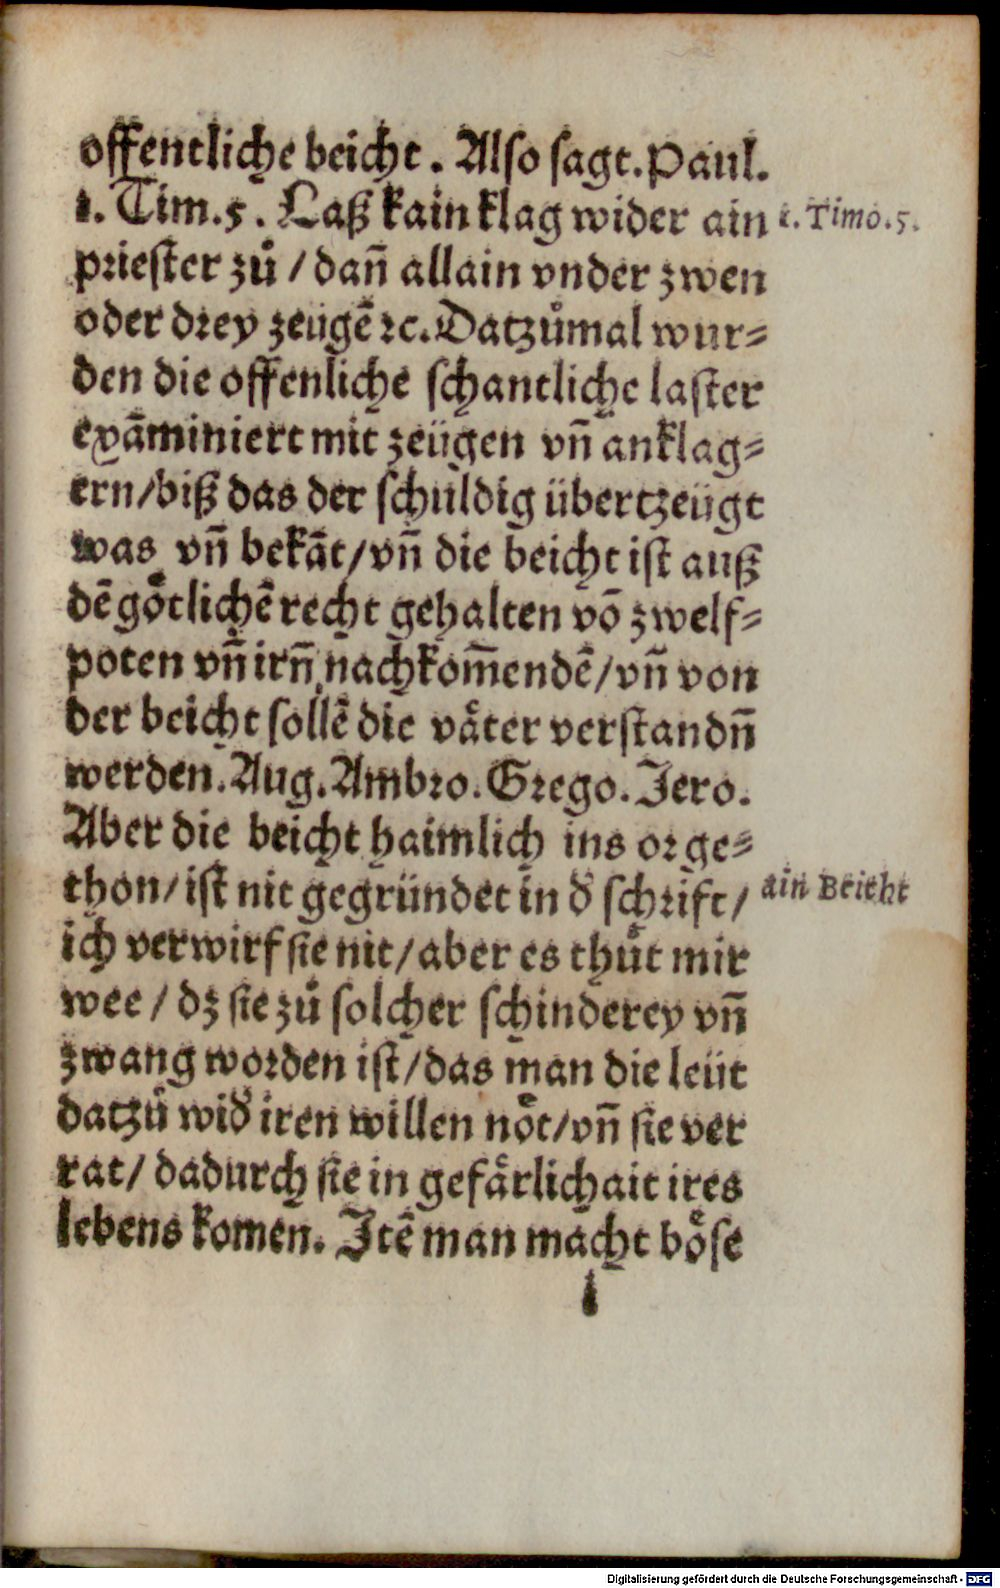 offentliche beicht. Also sagt. Paul.
1. Tim. 5. Laß kain klag wider ain
1. Timo. 5.
priester zů / dañ allain vnder zwen
oder drey zeügē ꝛc. Datzůmal wur⸗
den die offenliche schantliche laster
exāminiert mit zeügen vñ anklag⸗
ern/biß das der schuldig übertzeügt
was vñ bekāt/vñ die beicht ist auß
dē goͤtlichē recht gehalten vō zwelf⸗
poten vñ irñ nachkom̄endē/vñ von
der beicht sollē die vaͤter verstandñ
werden. Aug. Ambro. Grego. Jero.
Aber die beicht haimlich ins or ge⸗
thon/ist nit gegründet in đ schrift/
ain Beicht
ich verwirf sie nit/aber es thůt mir
wee / dz sie zů solcher schinderey vñ
zwang worden ist/das man die leüt
datzů wiđ iren willen noͤt/vñ sie ver
rat/ dadurch sie in gefaͤrlichait ires
lebens komen. Itē man macht boͤse
i
Digitalisierung gefördert durch die Deutsche Forschungsgemeinschaft - DFG